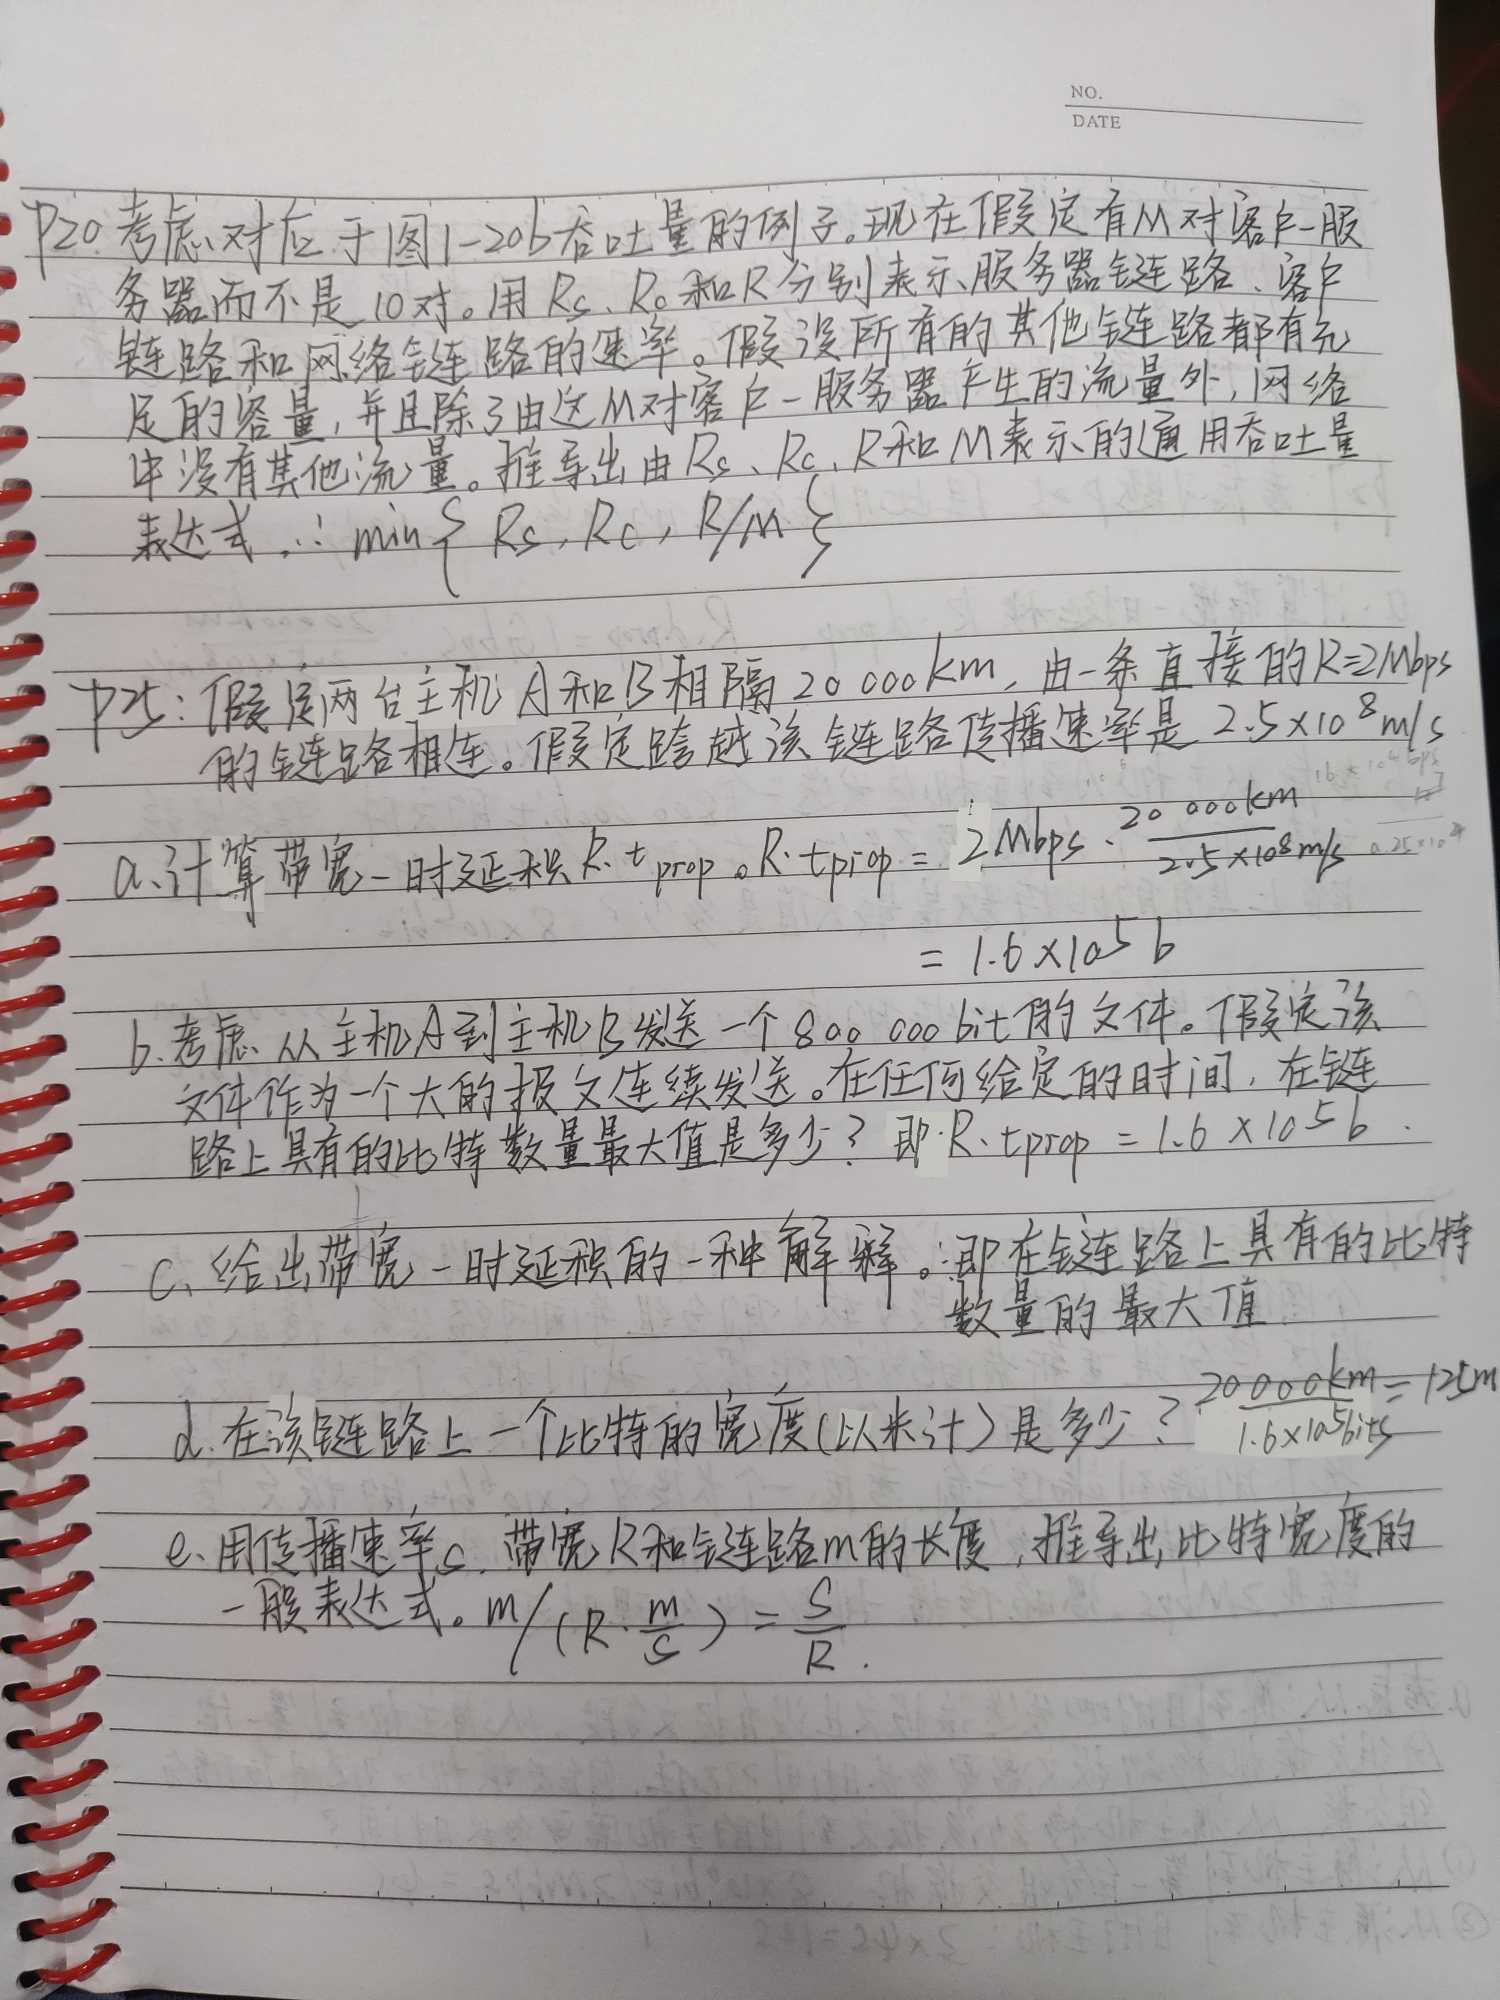 NO.
DATE
P20.考虑对应于图1-20b吞吐量的例子。现在假定有M对客户-服
务器而不是10对。用Rs、Rc和R分别表示服务器链路、客户
链路和网络链路的速率。假设所有的其他链路都有充
足的容量,并且除了由这M对客户-服务器产生的流量外,网络
中没有其他流量。推导出由Rs、Rc、R和M表示的通用吞吐量
表达式.∴ min{Rs,Rc,R/M}
P25:假定两台主机A和B相隔20 000km,由一条直接的R=2Mbps
的链路相连。假定跨越该链路传播速率是2.5×10^8m/s
a.计算带宽-时延积R·tprop。R·tprop = 2Mbps·20 000km/2.5×10^8m/s
= 1.6×10^5 b
b.考虑从主机A到主机B发送一个800 000bit的文件。假定该
文件作为一个大的报文连续发送。在任何给定的时间,在链
路上具有的比特数量最大值是多少?即R·tprop=1.6×10^5b.
c、给出带宽-时延积的一种解释。:即在链路上具有的比特
数量的最大值
d.在该链路上一个比特的宽度(以米计)是多少?20 000km/1.6×10^5bits=125m
e、用传播速率s、带宽R和链路m的长度,推导出比特宽度的
一般表达式。m/(R·m/s)=S/R.